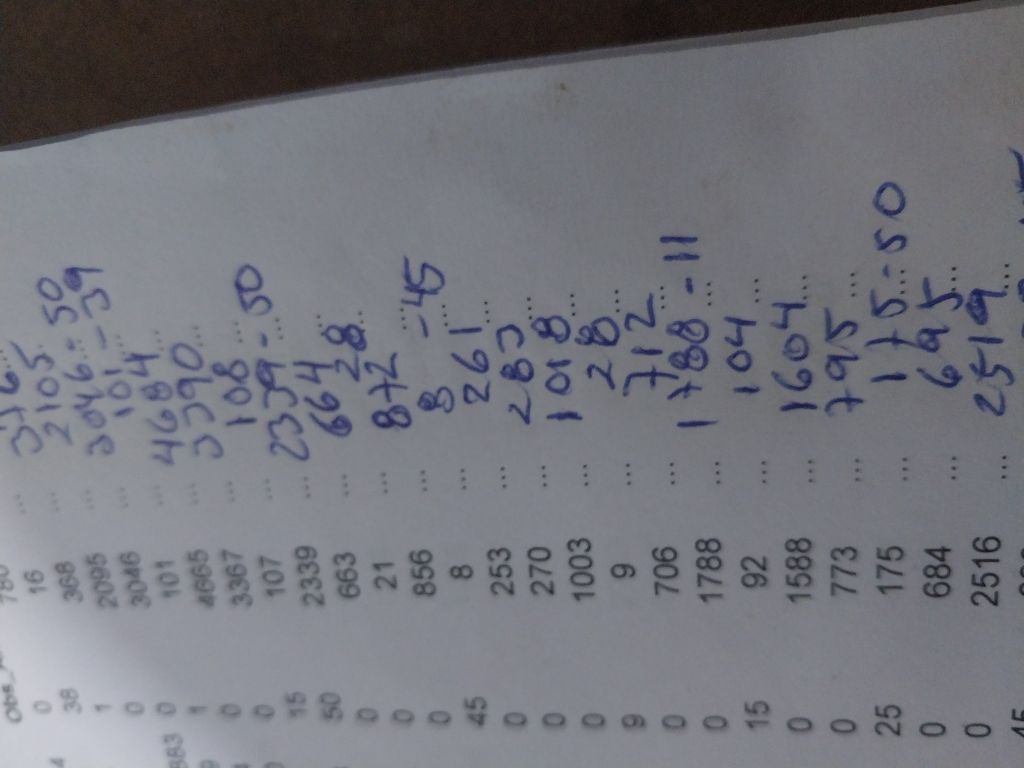 Obs_
0 780
38 16 ...
1 368 ... 376
0 2095 ... 2105
0 3046 ... 3046 - 50
1 101 ... 101 - 39
0 4665 ... 4684
0 3367 ... 3390
15 107 ... 108
50 2339 ... 2339 - 50
0 663 ... 664
0 21 ... 28
0 856 ... 872
45 8 ... 8 - 45
0 253 ... 261
0 270 ... 283
0 1003 ... 1018
9 9 ... 28
0 706 ... 712
0 1788 ... 1788 - 11
15 92 ... 104
0 1588 ... 1604
0 773 ... 795
25 175 ... 175 - 50
0 684 ... 695
0 2516 ... 2519
45